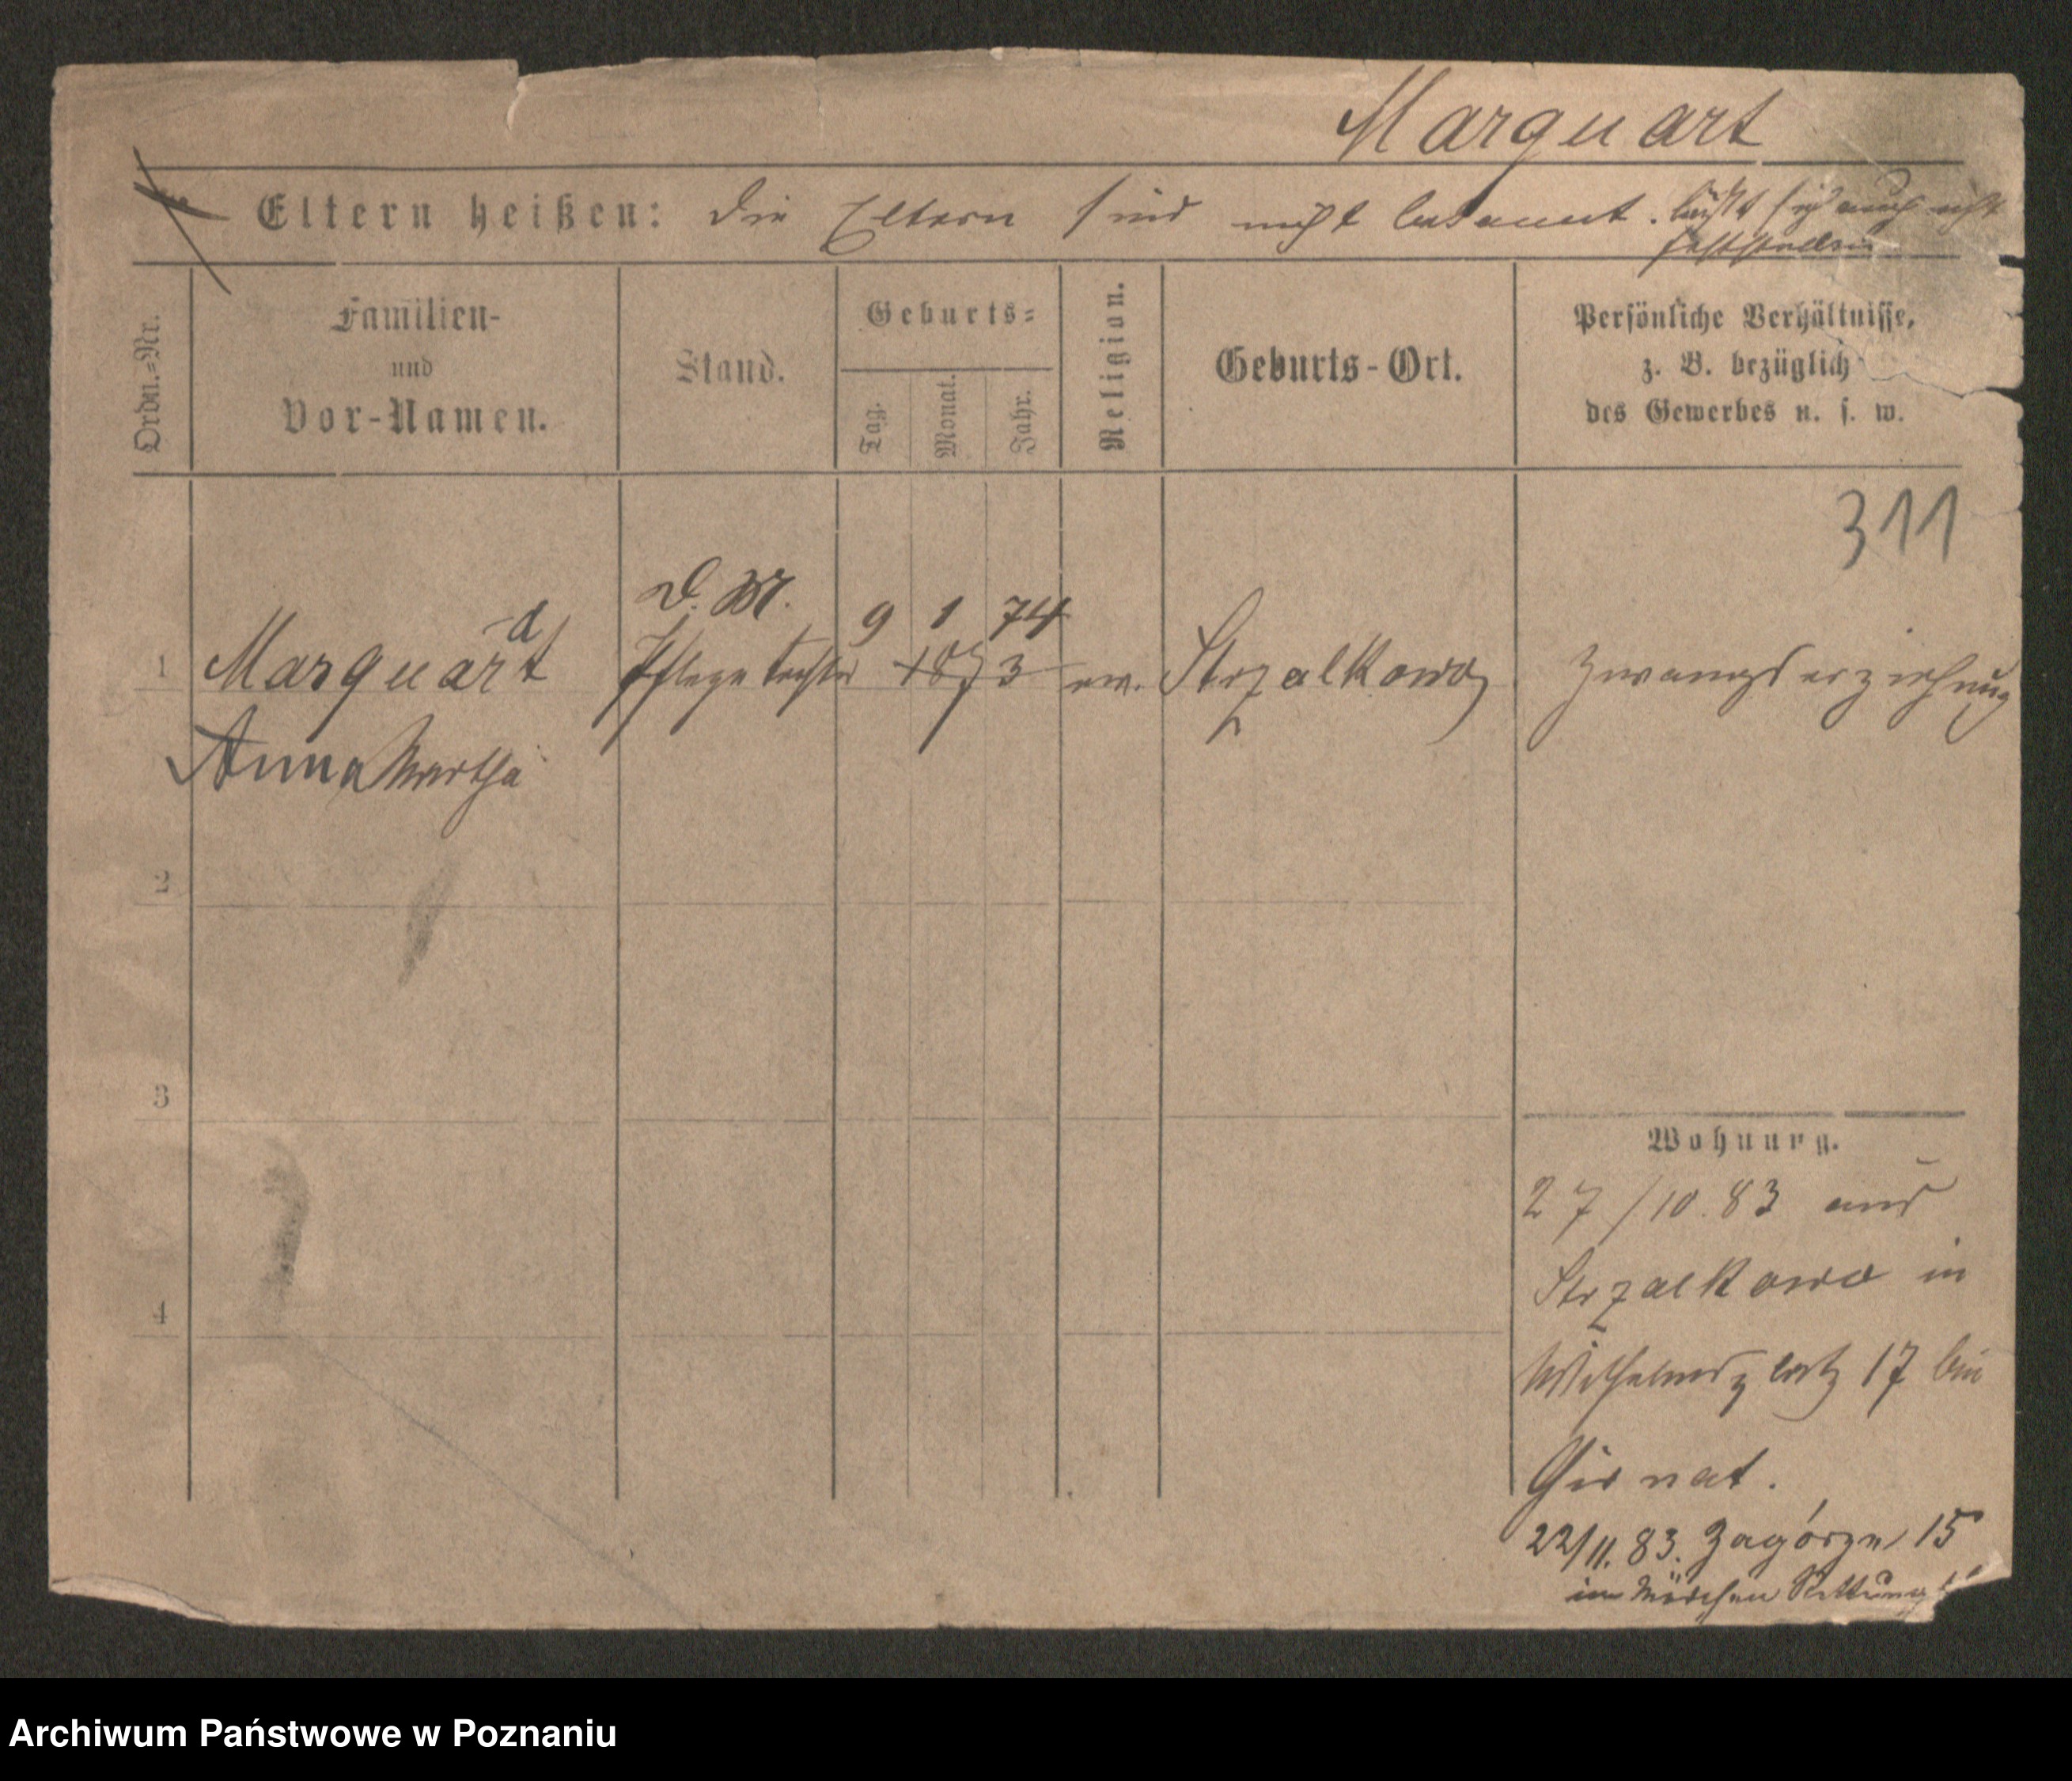 Marquart
Eltern heißen: Die Eltern sind nicht bekannt. läßt sich auch nicht
feststellen
Ordn.-Nr.
Familien-
und
Vor-Namen.
Stand.
Geburts-
Tag.
Monat.
Jahr.
Religion.
Geburts-Ort.
Persönliche Verhältnisse,
z. B. bezüglich
des Gewerbes u. s. w.
311
D. M. 9 1 74
d
1 Marquart Pflegetochter 1873 ev. Strzalkowo Zwangserziehung
Anna Martha
2
3
4
Wohnung.
27/10.83 aus
Strzalkowo in
Wilhelmsplatz 17 bei
Girnat.
22/11.83. Zagórze 15
im Mädchen Rettungs
Archiwum Państwowe w Poznaniu